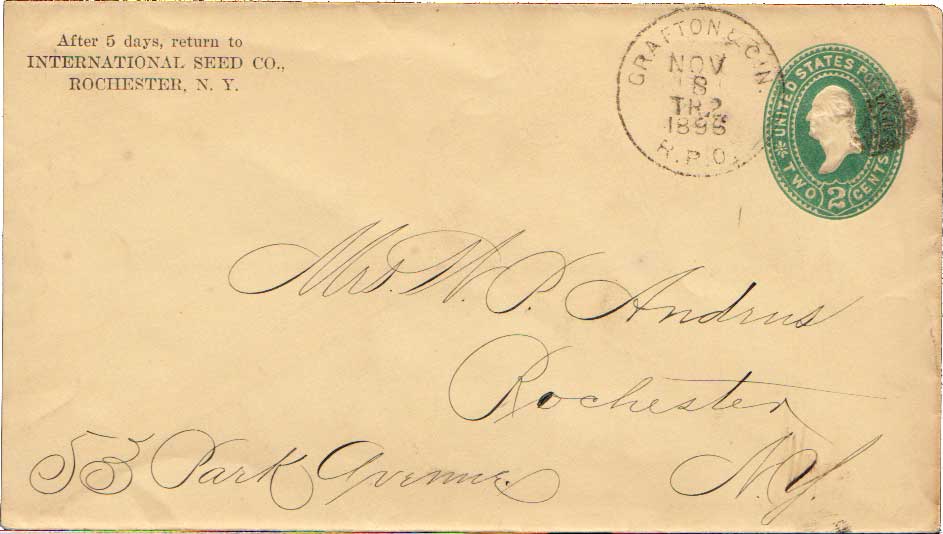 After 5 days, return to
INTERNATIONAL SEED CO.,
ROCHESTER, N. Y.
GRAFTON & CIN.
NOV
8
TR 2
1895
R.P.O.
UNITED STATES POSTAGE
TWO 2 CENTS
Mrs. W. P. Andrus
Rochester
53 Park Avenue. N.Y.